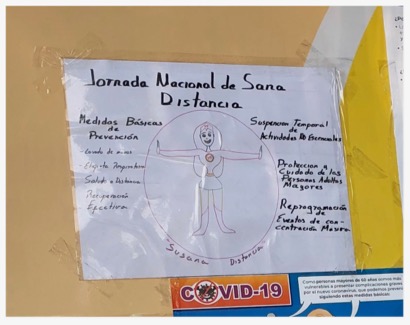 Jornada Nacional de Sana
Distancia
Medidas Básicas
de
Prevención
- Lavado de manos
- Etiqueta Respiratoria
- Saludo a Distancia
- Recuperación
Efectiva
Suspension Temporal
de
Actividades No Esenciales
Proteccion y
Cuidado de las
Personas Adultas
Mayores
Reprogramación
de
Eventos de con-
centración Masiva
Susana Distancia
COVID-19
Como personas mayores de 60 años somos más
vulnerables a presentar complicaciones graves
por el nuevo coronavirus, que podemos prevenir
siguiendo estas medidas básicas: